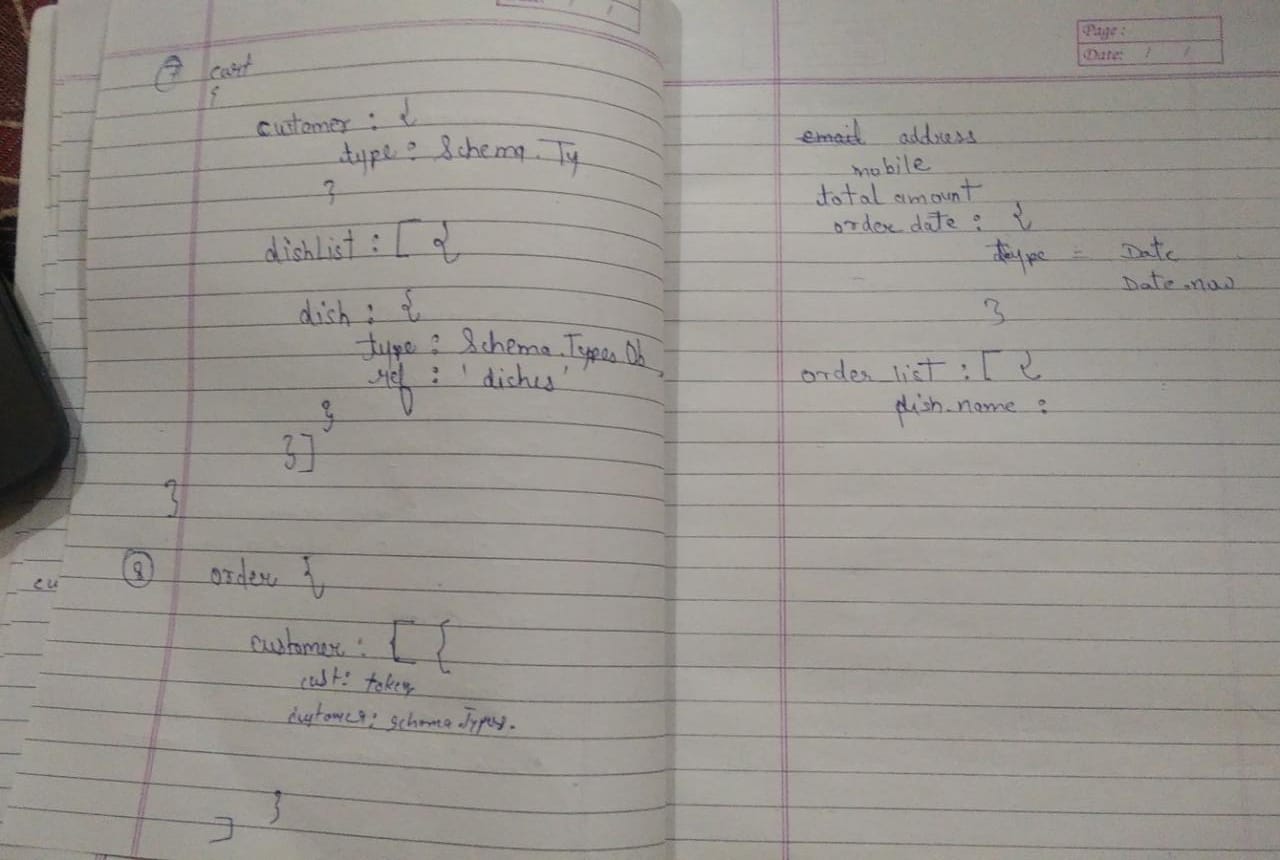 7 cart
{
customer : {
type : Schema.Ty
}
dishList : [ {
dish : {
type : Schema.Types.Ob
ref : 'dishes'
}
}]
}
8 order {
customer : [ {
cust : token
customer : schema Types.
}
]
cu
Page :
Date: / /
email address
mobile
total amount
order date : {
type = Date
Date.now
}
order list : [ {
dish.name :